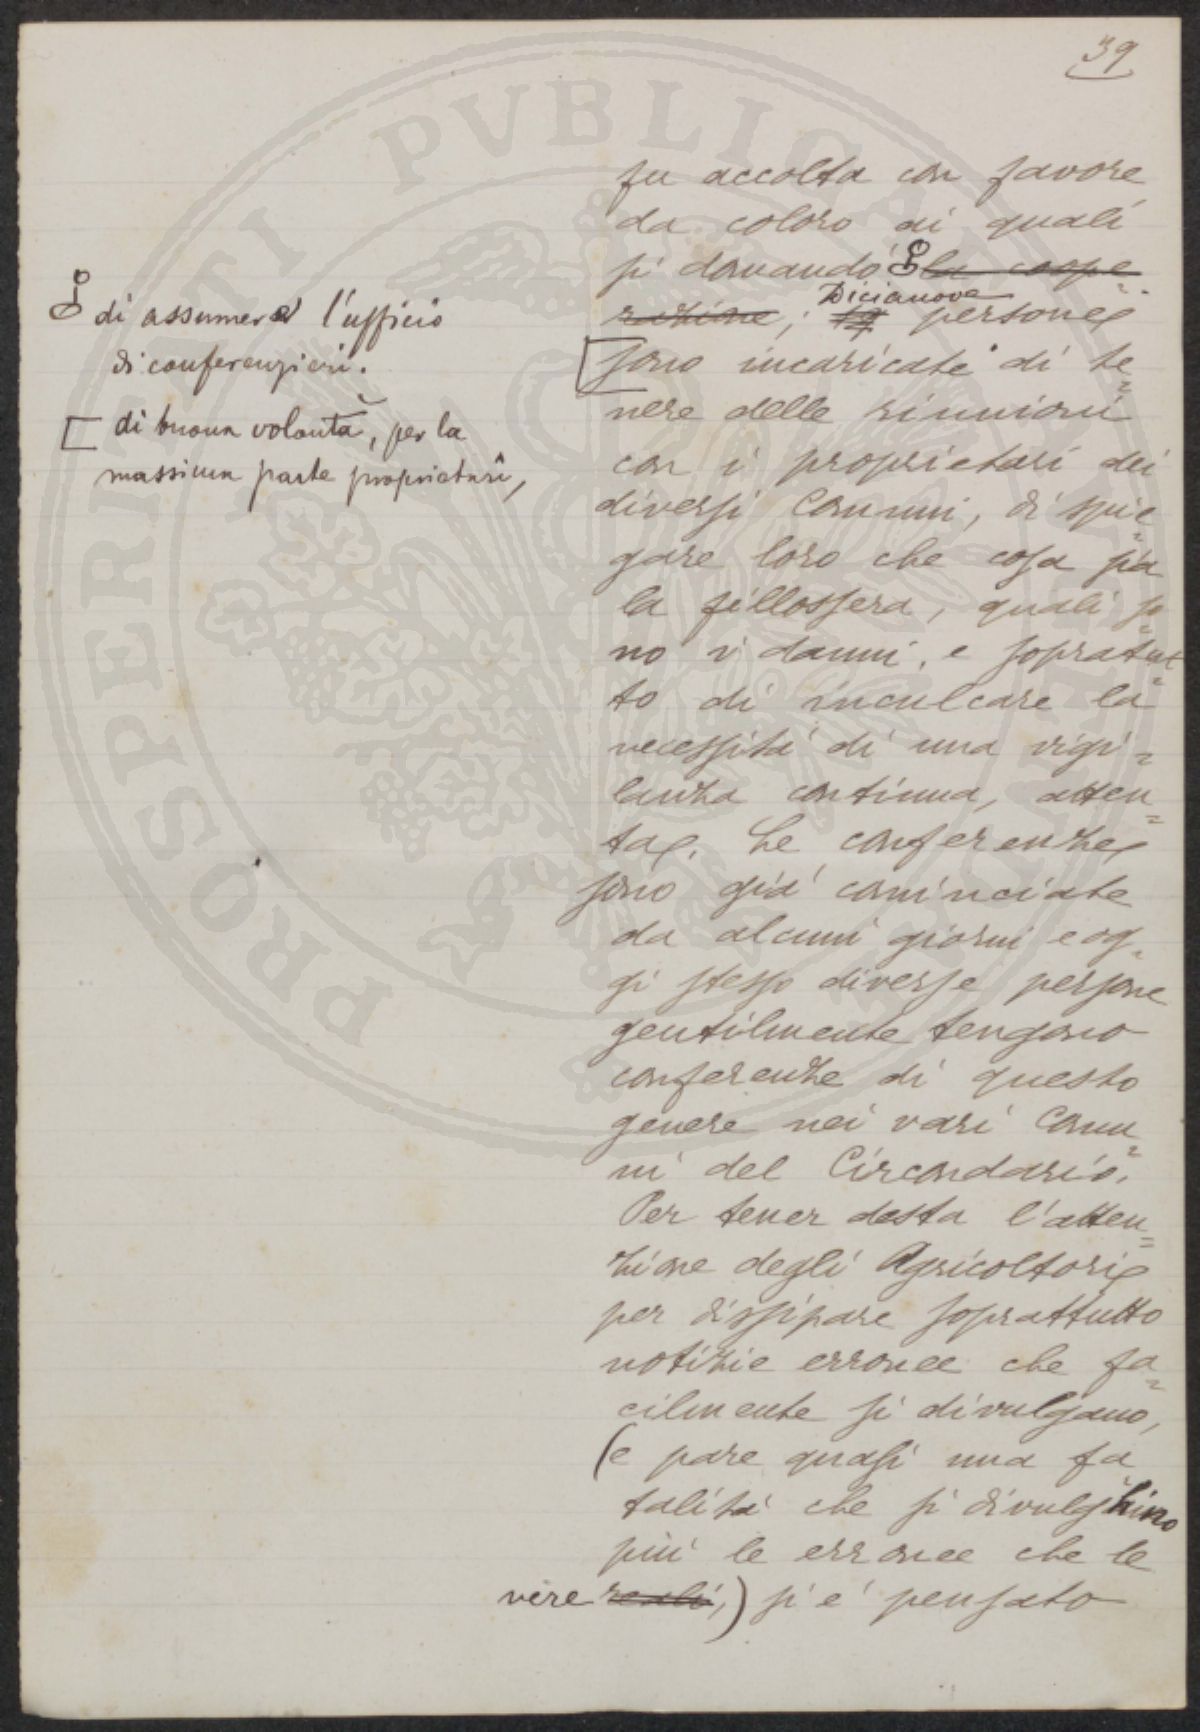 39
fu accolta con favore
da coloro ai quali
si domandò la coope=
Dicianove
razione; 19 persone
sono incaricate di te=
nere delle riunioni
con i proprietari dei
diversi Comuni, di spie=
gare loro che cosa sia
la fillossera, quali so=
no i danni, e sopratut=
to di inculcare la
necessità di una vigi=
lanza continua, atten=
ta. Le conferenze
sono già cominciate
da alcuni giorni e og=
gi stesso diverse persone
gentilmente tengono
conferenze di questo
genere nei vari Comu=
ni del Circondario.
Per tener desta l'atten=
zione degli Agricoltori
per dissipare soprattutto
notizie erronee che fa=
cilmente si divulgano,
(e pare quasi una fa
talità che si divulghino
più le erronee che le
vere reali,) si e' pensato
di assumere l'ufficio
di conferenzieri.
di buona volontà, per la
massima parte proprietari,
PROSPERITATI PVBLICAE